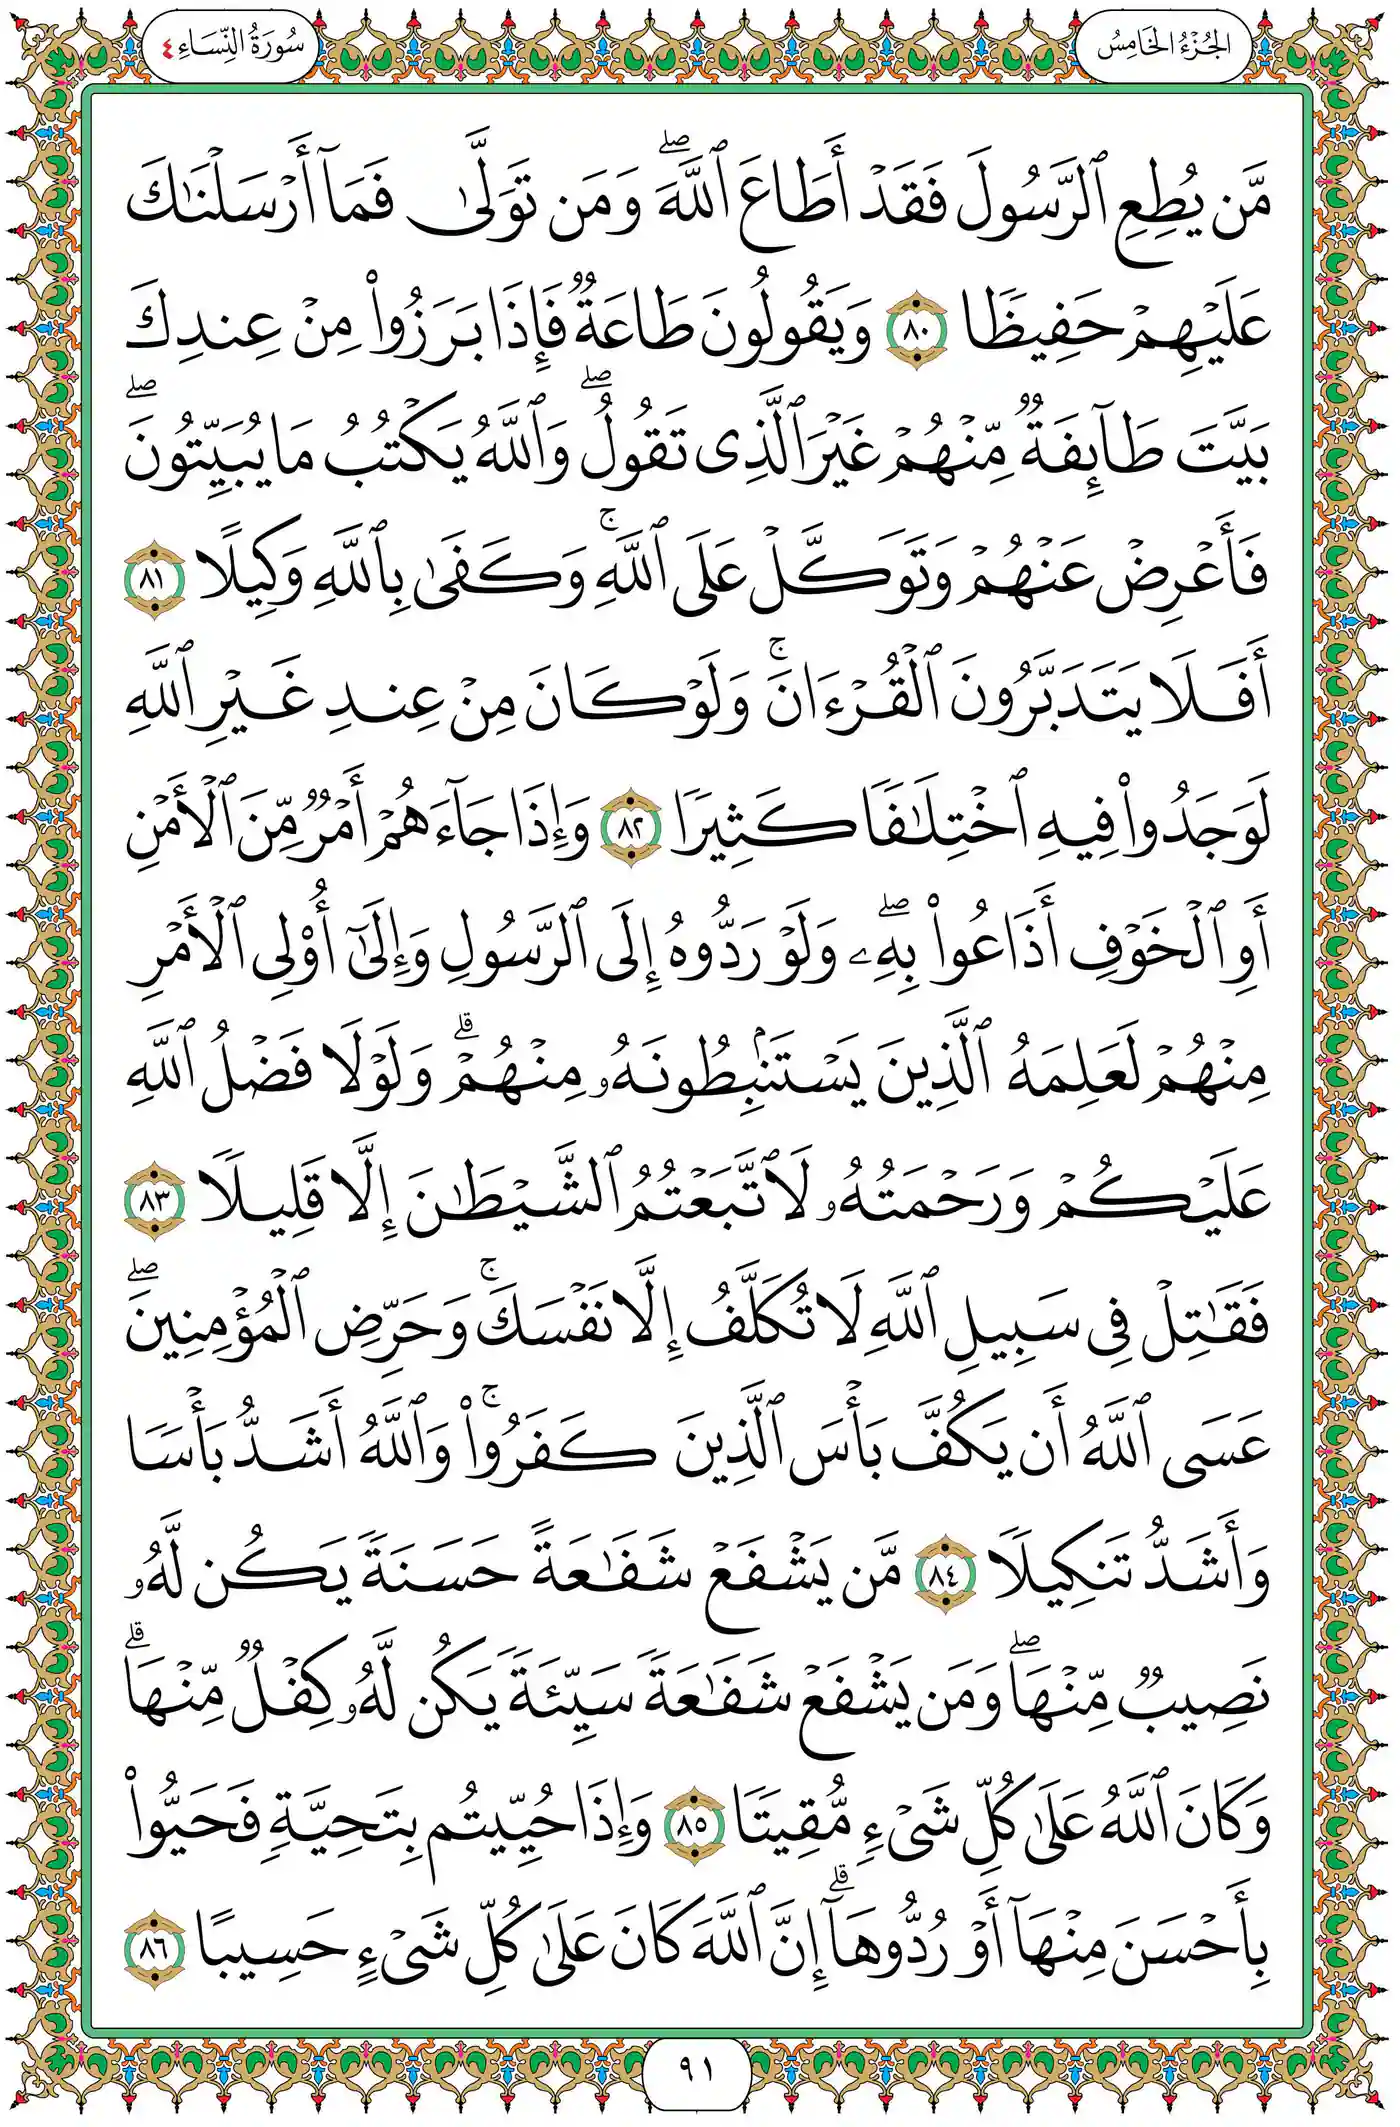 الجُزْءُ الخَامِسُ
سُورَةُ النِّسَاءِ ٤
مَّن يُطِعِ ٱلرَّسُولَ فَقَدۡ أَطَاعَ ٱللَّهَۖ وَمَن تَوَلَّىٰ فَمَآ أَرۡسَلۡنَٰكَ
عَلَيۡهِمۡ حَفِيظٗا ٨٠ وَيَقُولُونَ طَاعَةٞ فَإِذَا بَرَزُواْ مِنۡ عِندِكَ
بَيَّتَ طَآئِفَةٞ مِّنۡهُمۡ غَيۡرَ ٱلَّذِى تَقُولُۖ وَٱللَّهُ يَكۡتُبُ مَا يُبَيِّتُونَۖ
فَأَعۡرِضۡ عَنۡهُمۡ وَتَوَكَّلۡ عَلَى ٱللَّهِۚ وَكَفَىٰ بِٱللَّهِ وَكِيلًا ٨١
أَفَلَا يَتَدَبَّرُونَ ٱلۡقُرۡءَانَۚ وَلَوۡ كَانَ مِنۡ عِندِ غَيۡرِ ٱللَّهِ
لَوَجَدُواْ فِيهِ ٱخۡتِلَٰفٗا كَثِيرٗا ٨٢ وَإِذَا جَآءَهُمۡ أَمۡرٞ مِّنَ ٱلۡأَمۡنِ
أَوِ ٱلۡخَوۡفِ أَذَاعُواْ بِهِۦۖ وَلَوۡ رَدُّوهُ إِلَى ٱلرَّسُولِ وَإِلَىٰٓ أُوْلِى ٱلۡأَمۡرِ
مِنۡهُمۡ لَعَلِمَهُ ٱلَّذِينَ يَسۡتَنۢبِطُونَهُۥ مِنۡهُمۡۗ وَلَوۡلَا فَضۡلُ ٱللَّهِ
عَلَيۡكُمۡ وَرَحۡمَتُهُۥ لَٱتَّبَعۡتُمُ ٱلشَّيۡطَٰنَ إِلَّا قَلِيلٗا ٨٣
فَقَٰتِلۡ فِى سَبِيلِ ٱللَّهِ لَا تُكَلَّفُ إِلَّا نَفۡسَكَۚ وَحَرِّضِ ٱلۡمُؤۡمِنِينَۖ
عَسَى ٱللَّهُ أَن يَكُفَّ بَأۡسَ ٱلَّذِينَ كَفَرُواْۚ وَٱللَّهُ أَشَدُّ بَأۡسٗا
وَأَشَدُّ تَنكِيلٗا ٨٤ مَّن يَشۡفَعۡ شَفَٰعَةً حَسَنَةٗ يَكُن لَّهُۥ
نَصِيبٞ مِّنۡهَاۖ وَمَن يَشۡفَعۡ شَفَٰعَةٗ سَيِّئَةٗ يَكُن لَّهُۥ كِفۡلٞ مِّنۡهَاۗ
وَكَانَ ٱللَّهُ عَلَىٰ كُلِّ شَىۡءٖ مُّقِيتٗا ٨٥ وَإِذَا حُيِّيتُم بِتَحِيَّةٖ فَحَيُّواْ
بِأَحۡسَنَ مِنۡهَآ أَوۡ رُدُّوهَآۗ إِنَّ ٱللَّهَ كَانَ عَلَىٰ كُلِّ شَىۡءٍ حَسِيبًا ٨٦
٩١